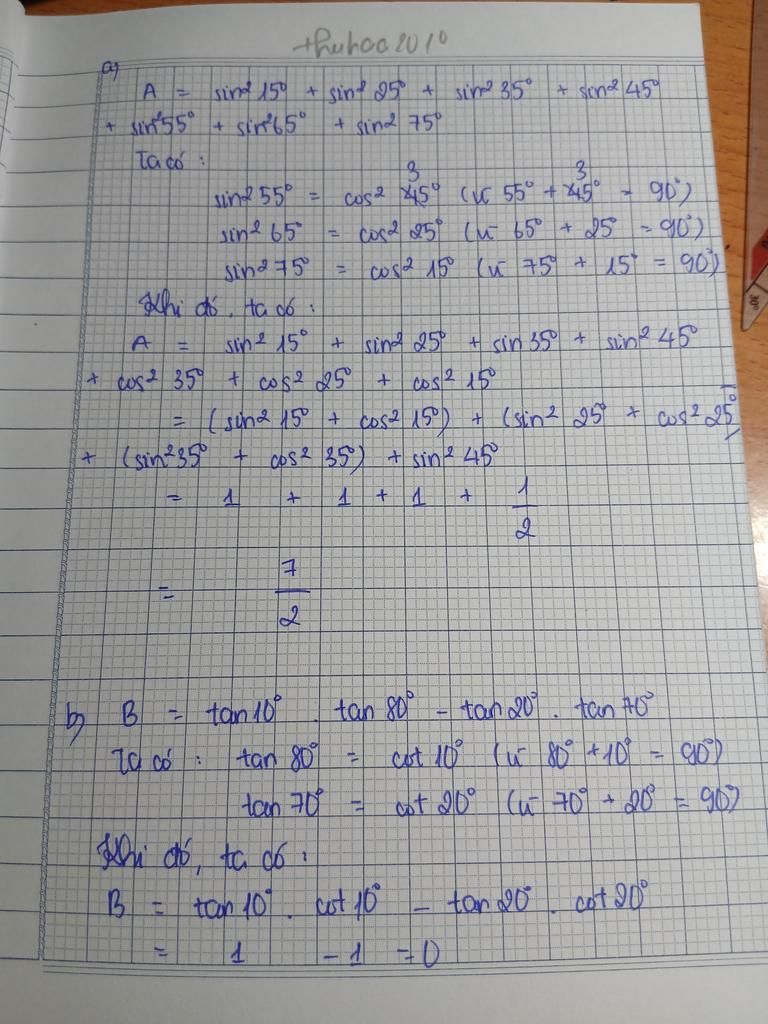 thuhoc2010
a)
A = sin² 15° + sin² 25° + sin² 35° + sin² 45°
+ sin² 55° + sin² 65° + sin² 75°
Ta có :
sin² 55° = cos² 35° (vì 55° + 35° = 90°)
sin² 65° = cos² 25° (vì 65° + 25° = 90°)
sin² 75° = cos² 15° (vì 75° + 15° = 90°)
Khi đó, ta có :
A = sin² 15° + sin² 25° + sin 35° + sin² 45°
+ cos² 35° + cos² 25° + cos² 15°
= (sin² 15° + cos² 15°) + (sin² 25° + cos² 25°)
+ (sin² 35° + cos² 35°) + sin² 45°
= 1 + 1 + 1 + 1/2
= 7/2
b) B = tan 10° . tan 80° - tan 20° . tan 70°
Ta có : tan 80° = cot 10° (vì 80° + 10° = 90°)
tan 70° = cot 20° (vì 70° + 20° = 90°)
Khi đó, ta có :
B = tan 10° . cot 10° - tan 20° . cot 20°
= 1 - 1 = 0
30°